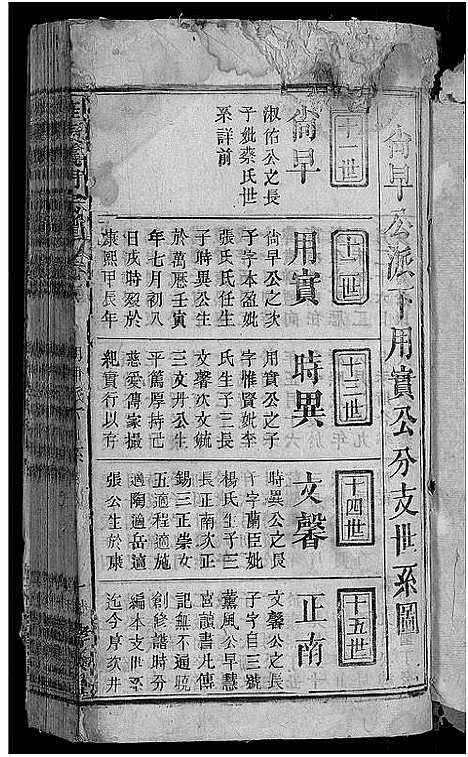 尙早公派下用實公分支世系圖
十一世
尙早
淑佑公之長
子妣蔡氏世
系詳前
十二世
用實
尙早公之次
子字本盈妣
張氏氏任生
子時異公生
於萬厯壬寅
年七月初八
日戌時歿於
康熙甲辰年
十三世
時異
用實公之子
字惟賢妣李
氏生子三長
文馨次文毓
三文井公生
平篤厚持己
慈愛傳家撮
紀實行以方
十四世
文馨
時異公之長
子字蘭臣妣
楊氏生子三
長正南次正
錫三正崇女
五適程適施
適陶適岳適
張公生於康
十五世
正南
文馨公之長
子字自三號
薰風公早慧
喜讀書凡傳
記無不通曉
創修譜時分
編本支世系
迄今序次井